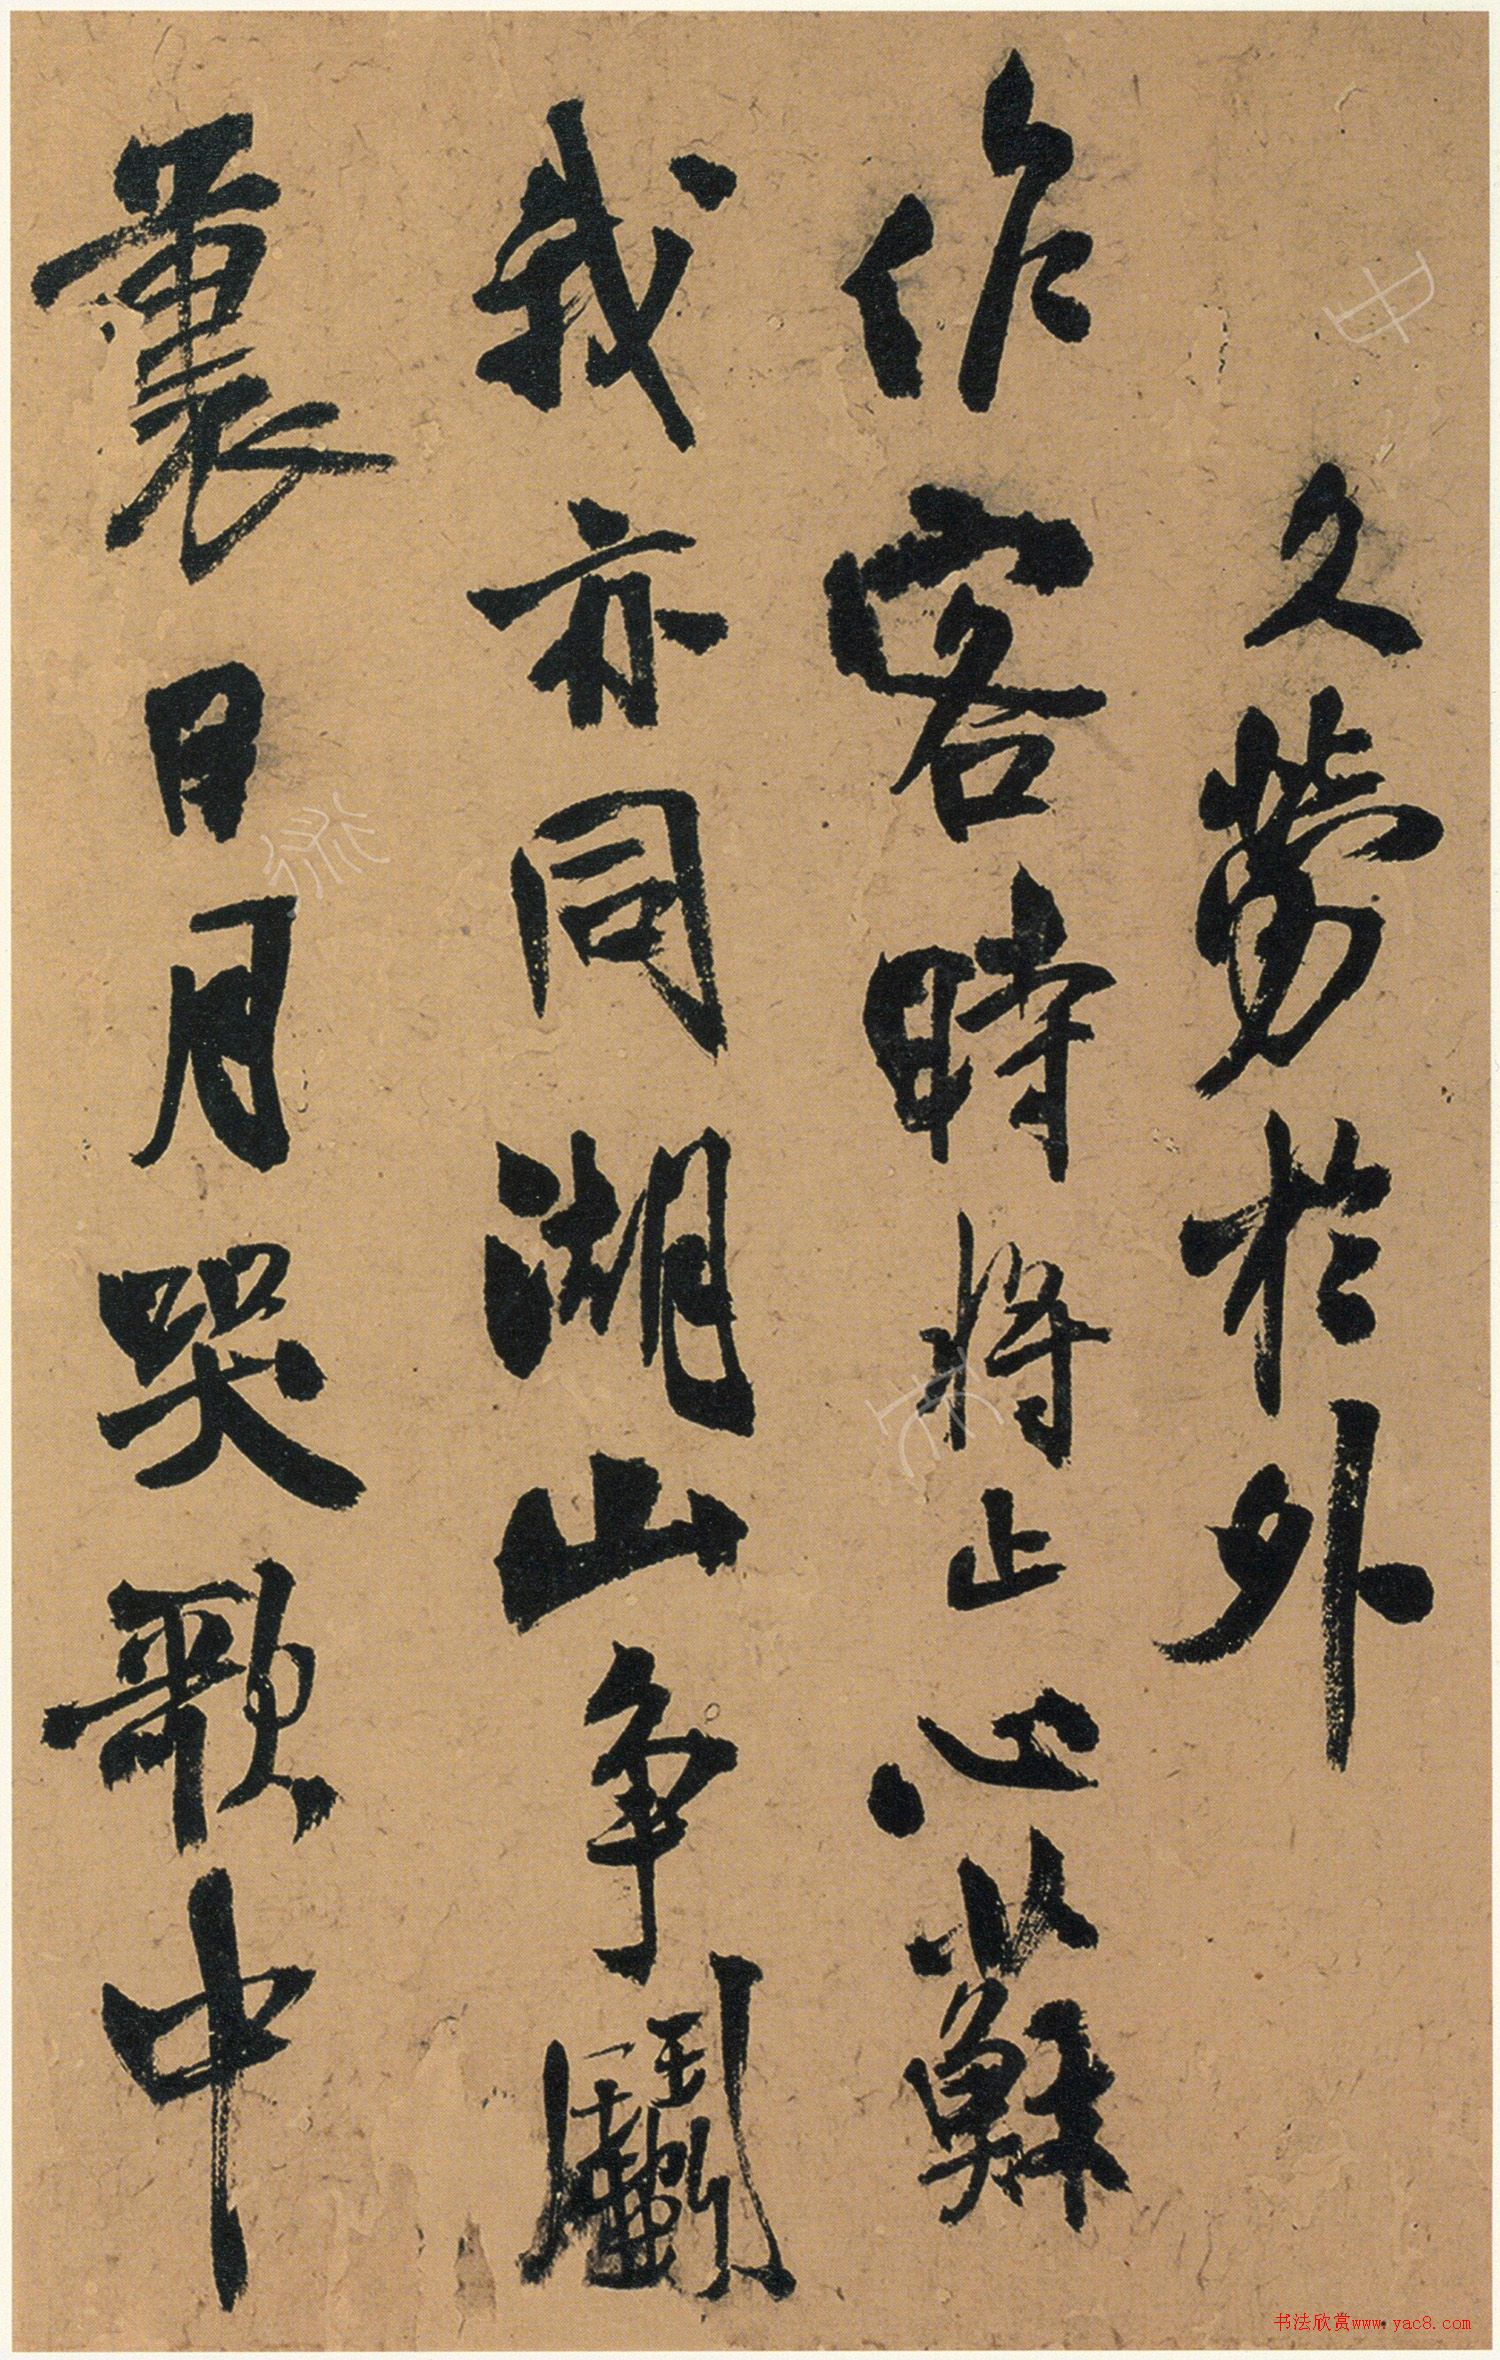 久劳於外
作客時將止心蘇
我亦同湖山争鬭
曩日月哭歌中
书法欣赏www.yac8.com